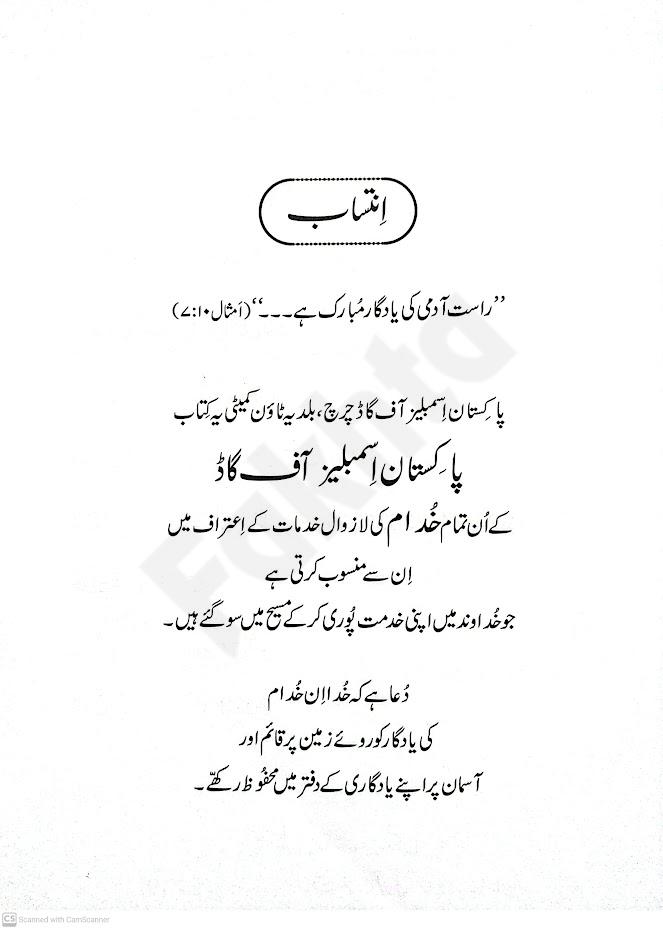 اِنتساب
”راست آدمی کی یادگار مُبارک ہے۔۔۔“ (اَمثال ۷:۱۰)
پاکِستان اِسمبلیز آف گاڈ چرچ، بلدیہ ٹاؤن کمیٹی یہ کِتاب
پاکِستان اِسمبلیز آف گاڈ
کے اُن تمام خُدام کی لازوال خدمات کے اِعتراف میں
اِن سے منسوب کرتی ہے
جو خُداوند میں اپنی خدمت پُوری کر کے مسیح میں سو گئے ہیں۔
دُعا ہے کہ خُدا اِن خُدام
کی یادگار کو روئے زمین پر قائم اور
آسمان پر اپنے یادگاری کے دفتر میں محفُوظ رکھّے۔
Fakhta
CS Scanned with CamScanner